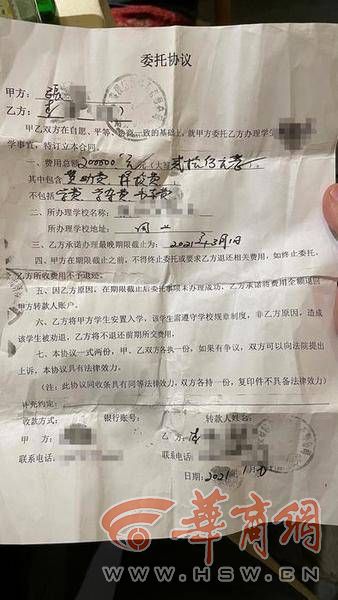 委托协议
甲方：張
乙方：李
甲乙双方在自愿、平等、协商一致的基础上，就甲方委托乙方办理学生
学事宜，特订立本合同。
一、费用总额200000元（大写 贰拾万元整）。
其中包含 赞助费 择校费
不包括 学费 学杂费 书本费
二、所办理学校名称：
所办理学校地址：
三、乙方承诺办理最晚期限截止为：2021年3月1日
四、甲方在期限截止之前，不得终止委托或要求乙方退还相关费用，如终止委托，
乙方所收费用不予退还。
五、因乙方原因，在期限截止后委托事项未办理成功，乙方承诺将费用全额退回
甲方转款人账户。
六、乙方将甲方学生安置入学，该学生需遵守学校规章制度，非乙方原因，造成
该学生被劝退，乙方将不退还前期所交费用。
七、本协议一式两份，甲、乙双方各执一份，如果有争议，双方可以向法院提出
上诉，本协议具有法律效力。
（注：此协议同收条具有同等法律效力，双方各持一份，复印件不具备法律效力）
补充约定：
收款方式： 银行账号： 转款人姓名：
甲 方： 乙 方：李
联系电话： 联系电话：
日期：2021年1月
華商網
WWW.HSW.CN